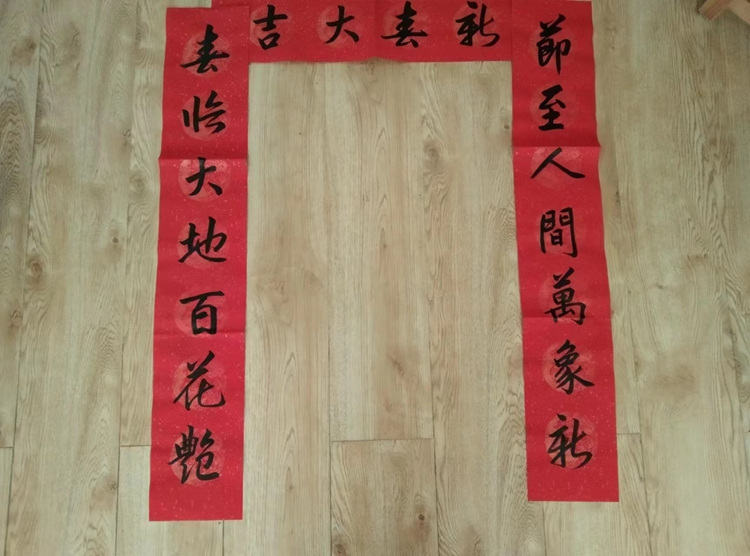 吉大春新
節至人間萬象新
春临大地百花艶